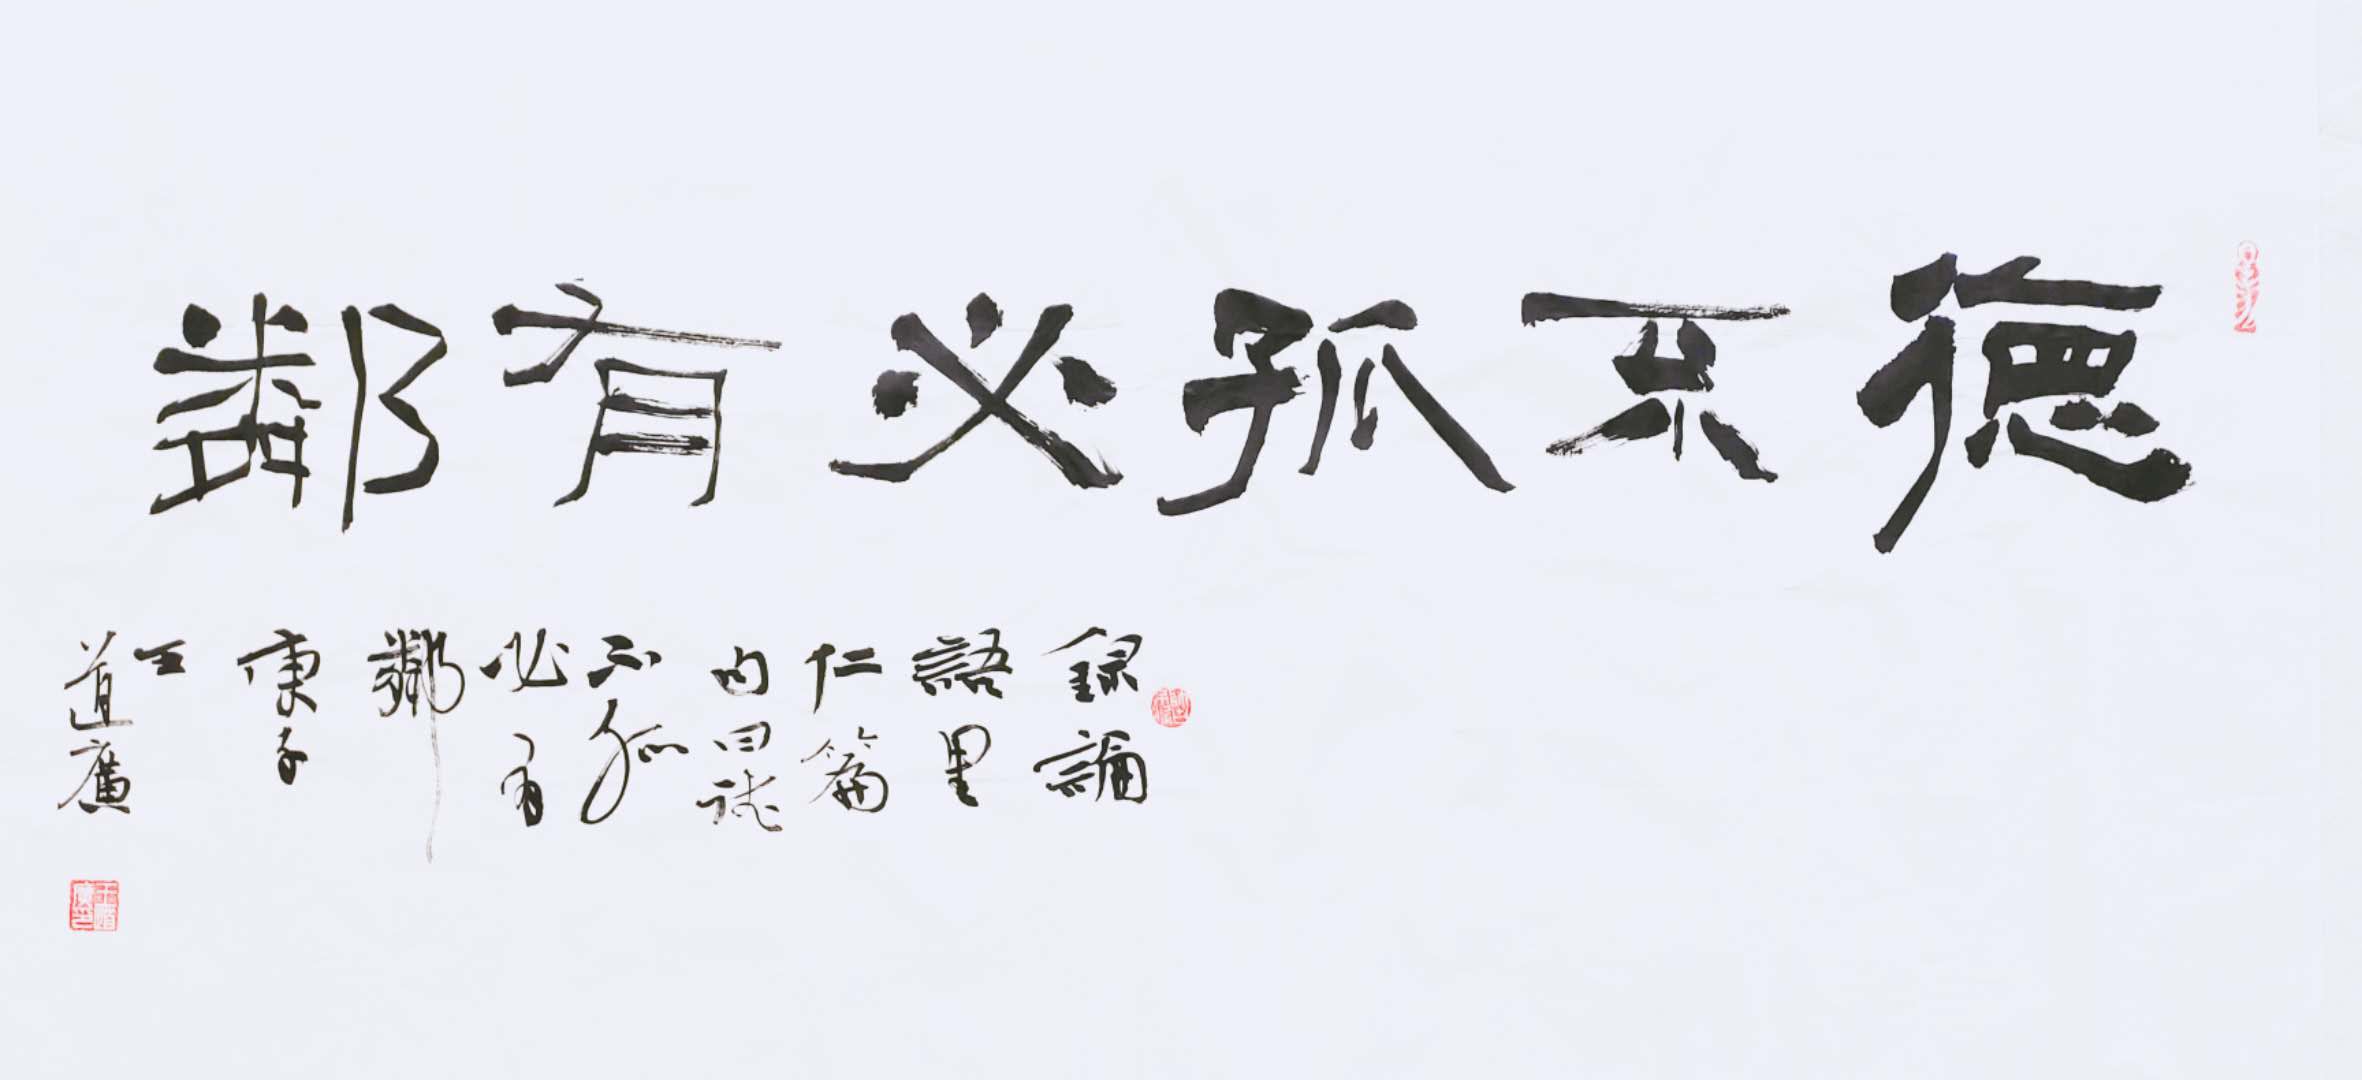 德不孤必有鄰
錄論
語里
仁篇
內曰德
不孤
必有
鄰
庚子
王
道廣